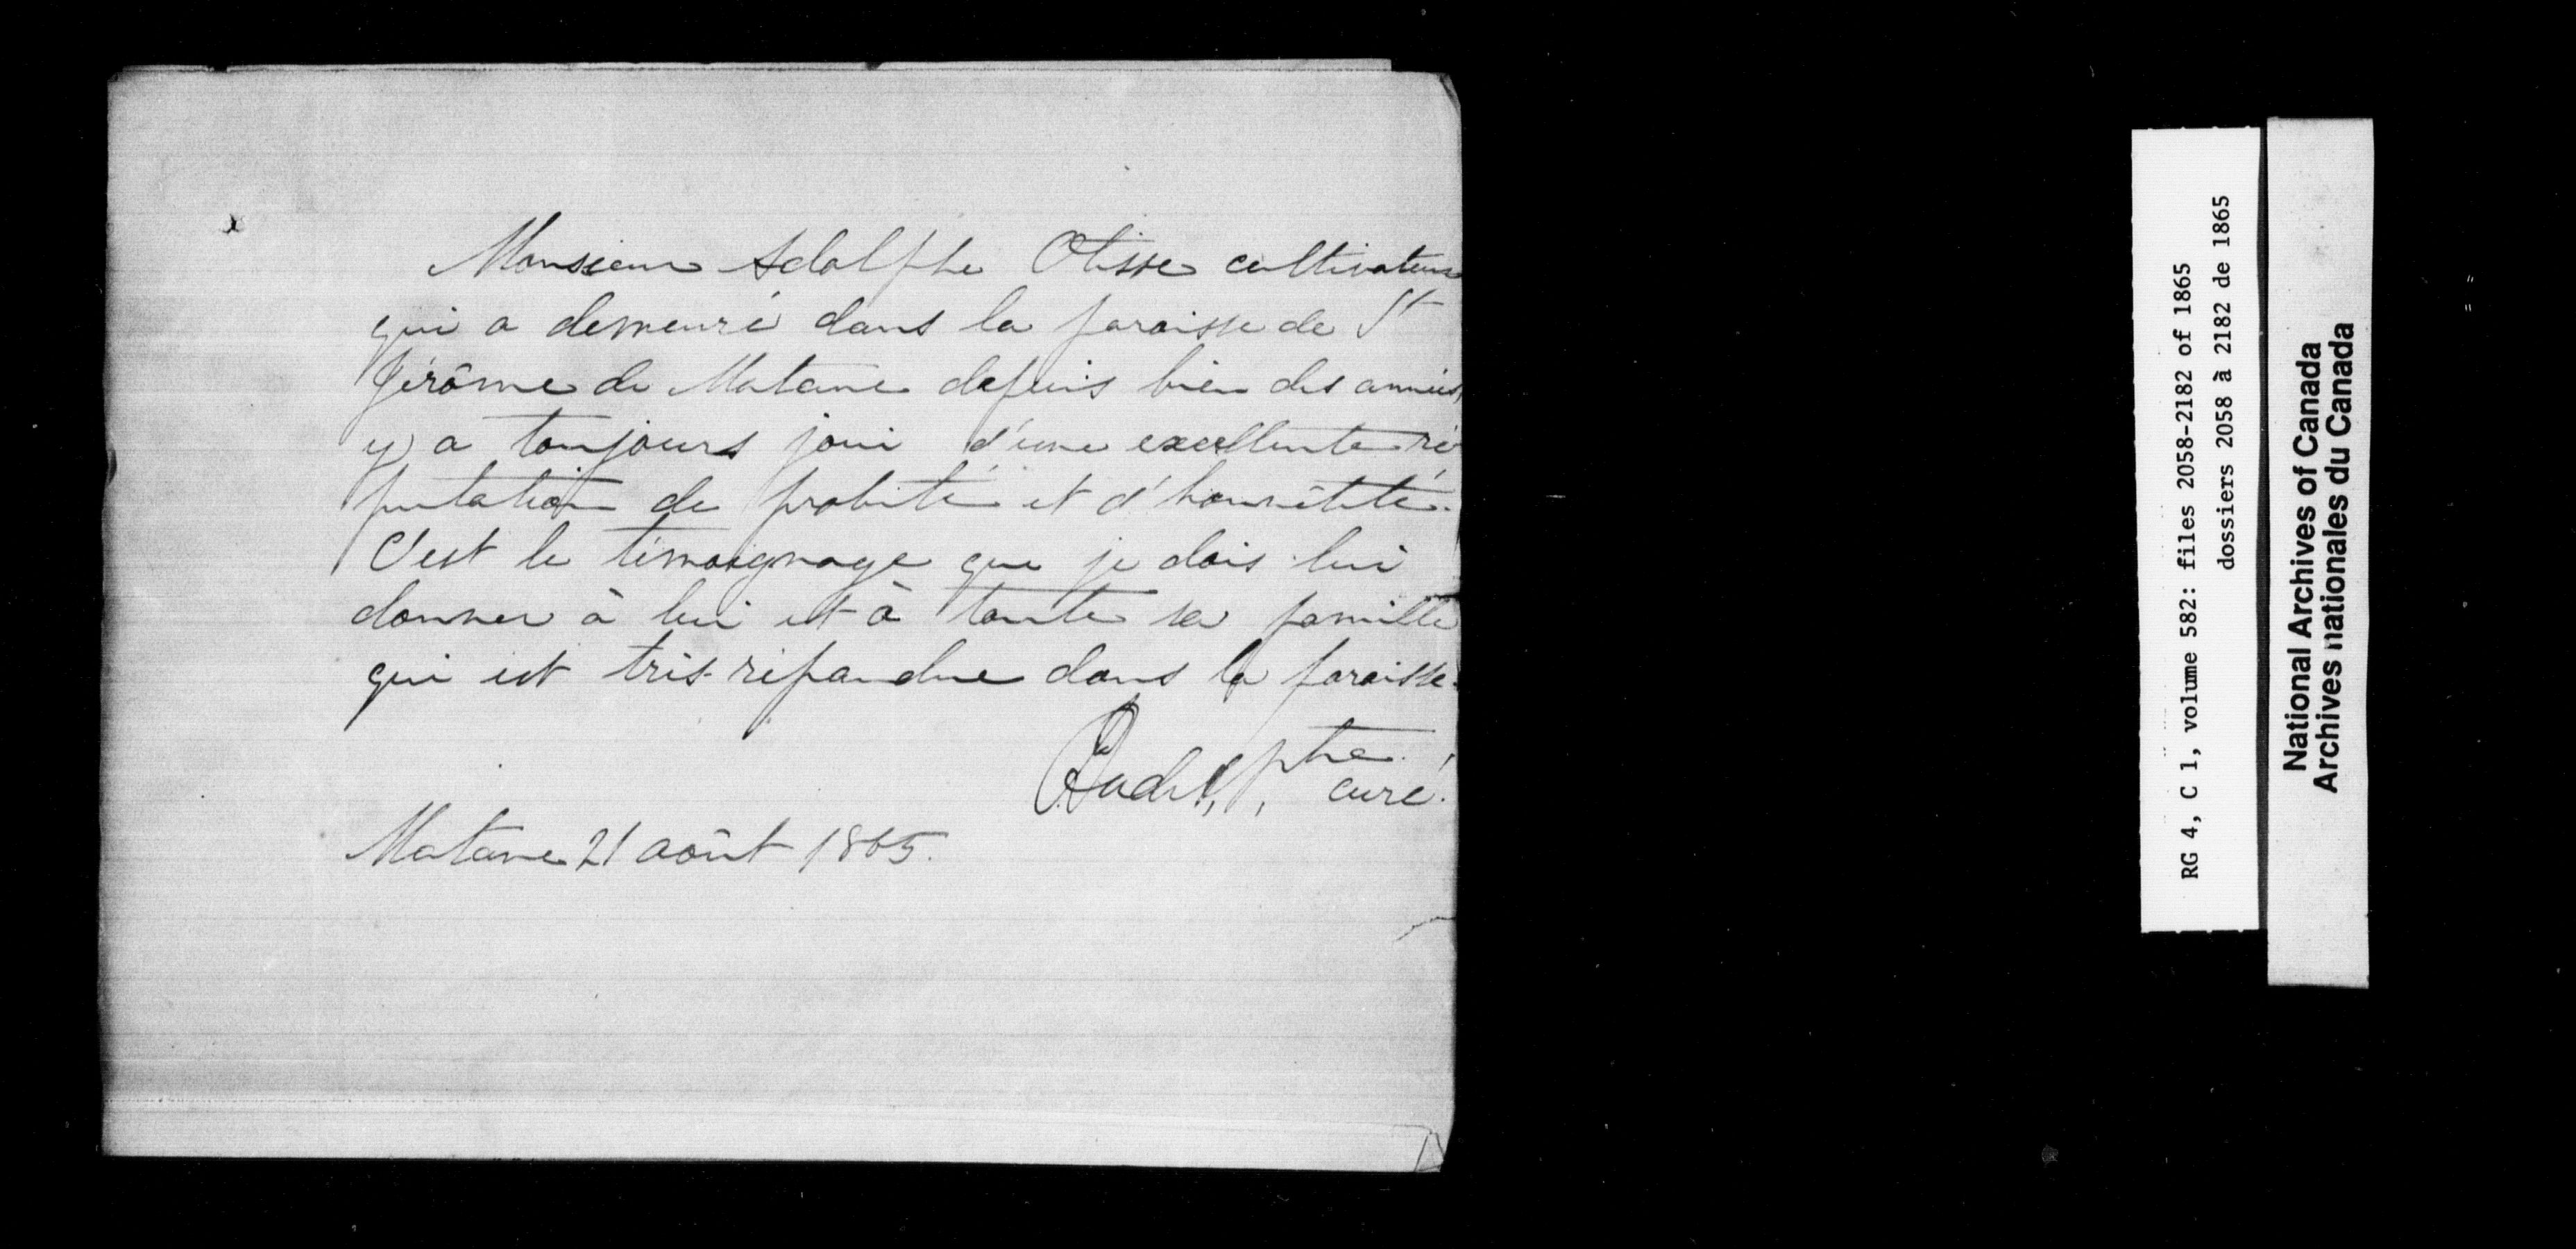 Monsieur Adolphe Otisse cultivateur
qui a demeuré dans la paroisse de St
Jérôme de Matane depuis bien des années,
y a toujours joui d'une excellente ré
putation de probité et d'honnêteté.
C'est le témoignage que je dois lui
donner à lui et à toute sa famille
qui est très-répandue dans la paroisse.
ptre
curé.
Matane 21 août 1865.
RG 4, C 1, volume 582: files 2058-2182 of 1865
dossiers 2058 à 2182 de 1865
National Archives of Canada
Archives nationales du Canada